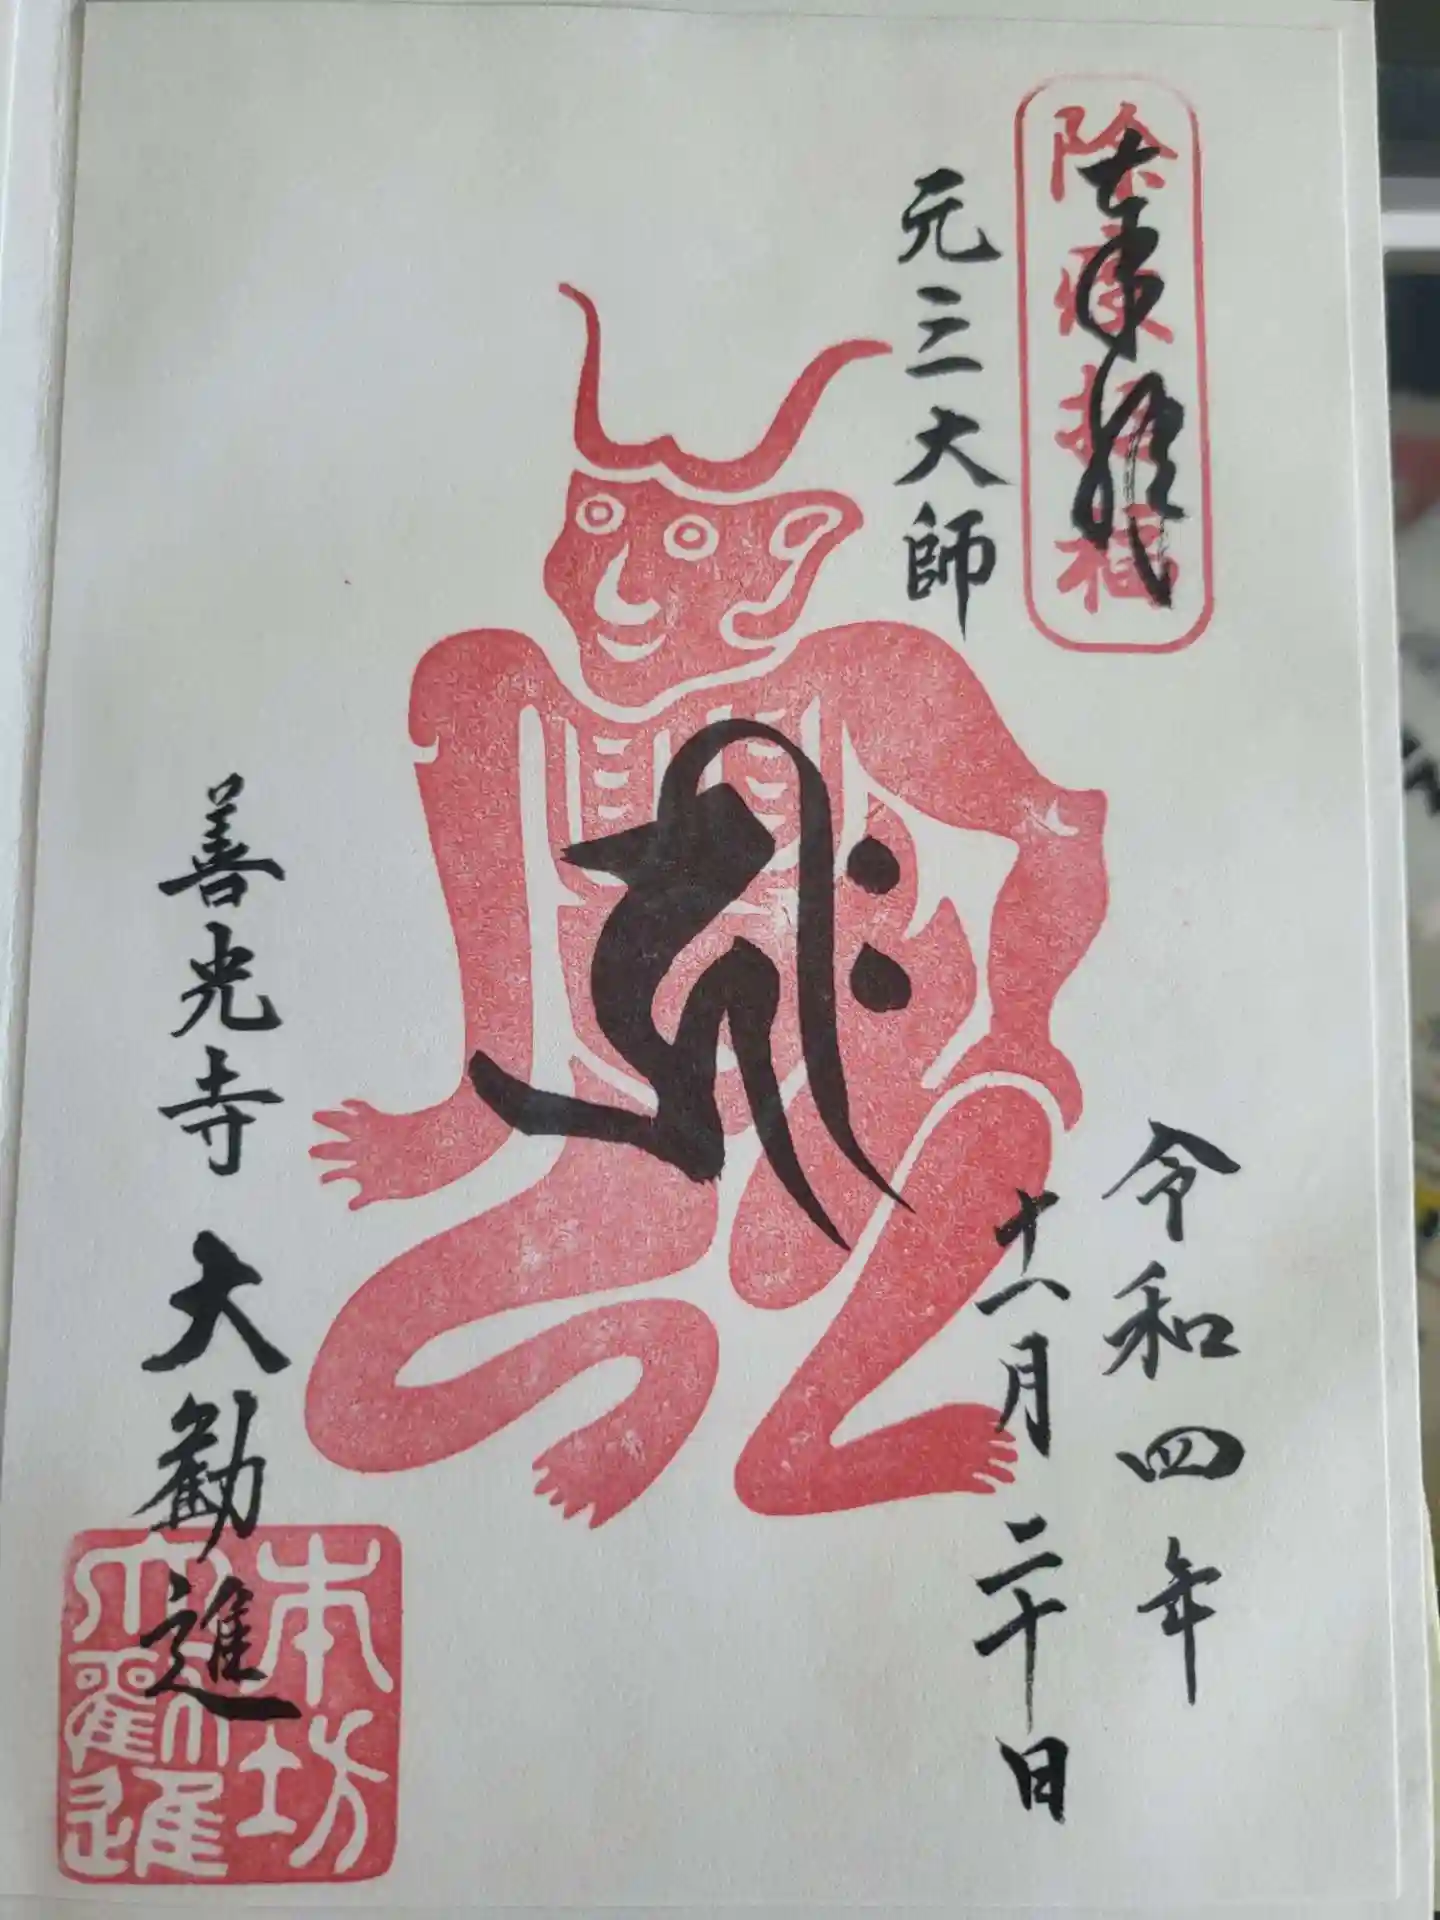 奉拝
除疫招福
元三大師
𑖮𑖿𑖨𑖱𑖾
令和四年
十一月二十日
善光寺 大勧進
本坊
大勸進